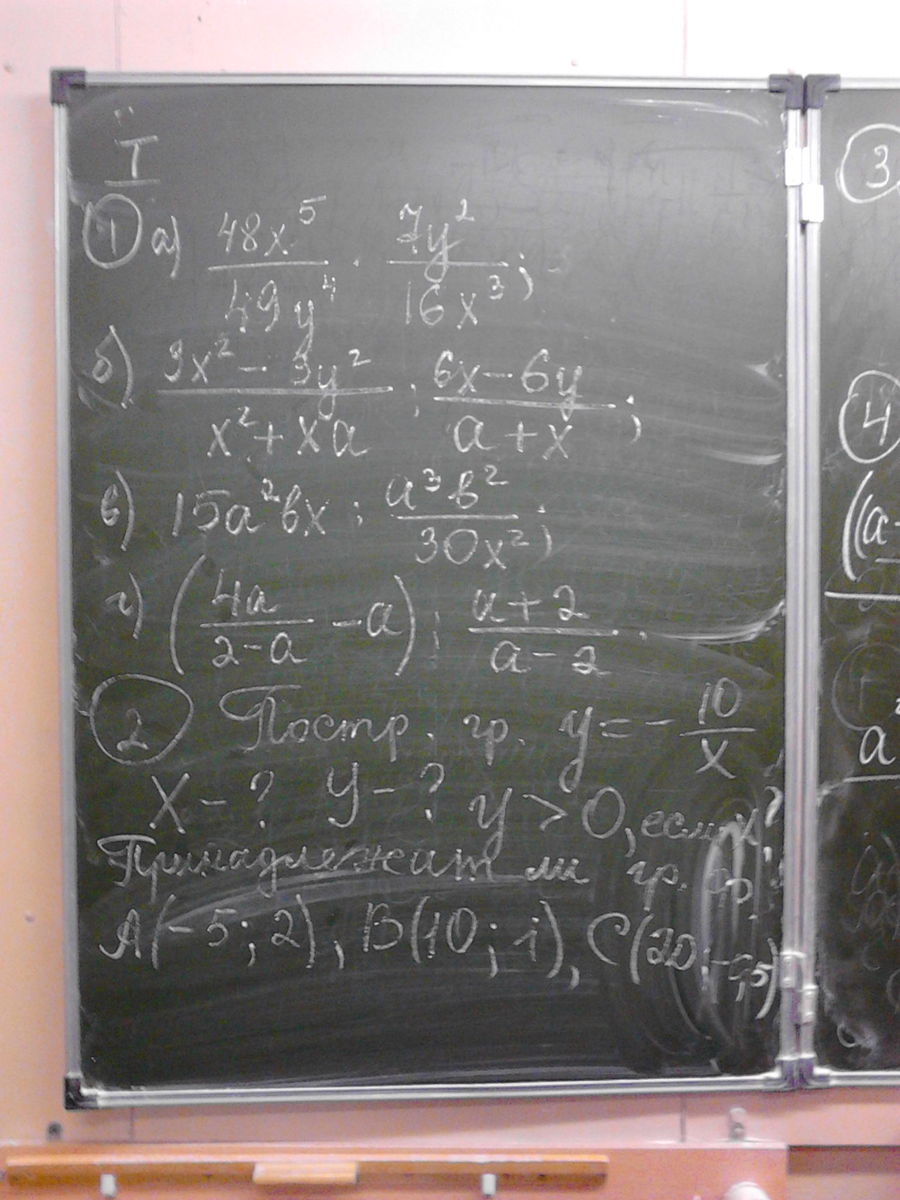 I
① а) 48x⁵/49y⁴ · 7y²/16x³;
б) (3x² - 3y²)/(x² + xa) : (6x - 6y)/(a + x);
в) 15a²bx : a³b²/30x²;
г) (4a/(2-a) - a) : (a+2)/(a-2).
② Постр. гр. y = - 10/x
X - ? У - ? y > 0, если x?
Принадлежат ли гр. ф.
A(-5; 2), B(10; 1), C(20; -0,5)
③
④
((a-
a